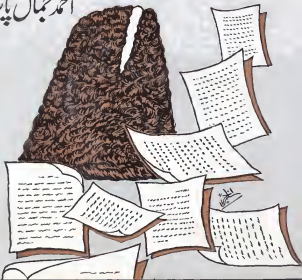 احمد جمال پا